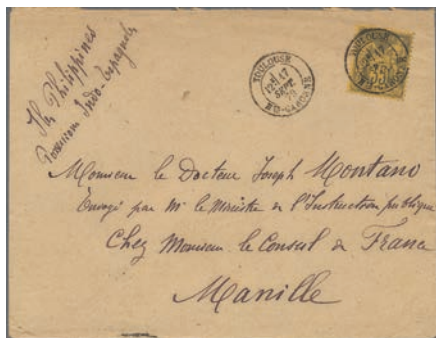 Iles Philippines
Possessions Indo-Espagnoles
TOULOUSE
17
SEPT
79
Hte GARONNE
TOULOUSE
17
35
Monsieur le Docteur Joseph Montano
Envoyé par Mr le Ministre de l'Instruction publique
Chez Monsieur le Consul de France
Manille